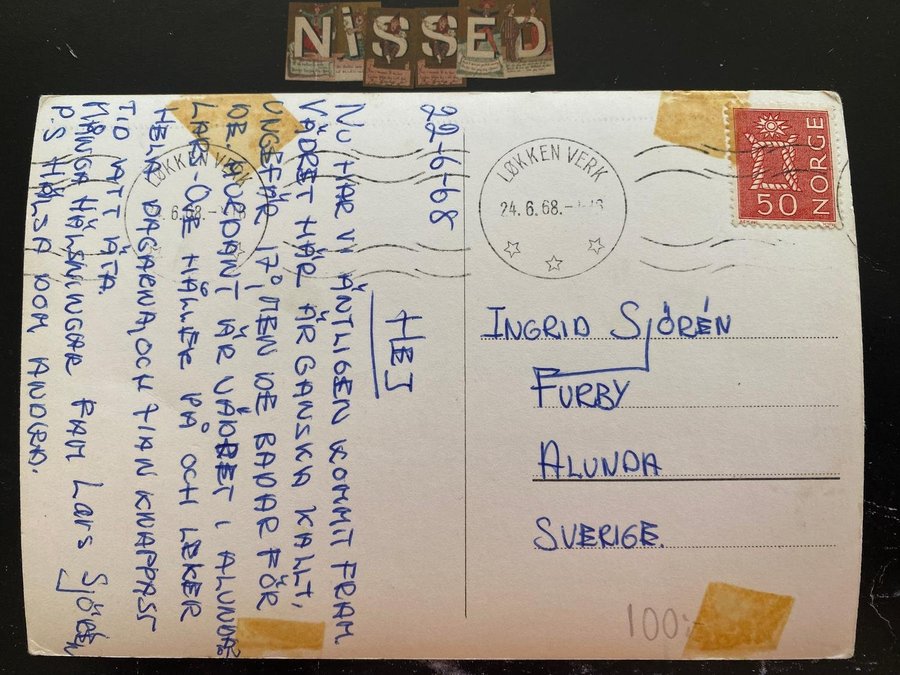 NISSED
22-6-68
HEJ
NU HAR VI ÄNTLIGEN KOMMIT FRAM.
VÄDRET HÄR ÄR GANSKA KALLT,
UNGEFÄR 17°, MEN DE BADAR FÖR
DE. HURDANT ÄR VÄDRET I ALUNDA?
LARS-OE HÅLLER PÅ OCH LEKER
HELA DAGARNA, OCH HAN KNAPPAST
TID ATT ÄTA.
MÅNGA HÄLSNINGAR FAM Lars Sjörén
P.S HÄLSA DOM ANDRA.
LØKKEN VERK
6.68.
LØKKEN VERK
24.6.68.
50 NORGE
INGRID SJÖRÉN
FURBY
ALUNDA
SVERIGE.
100: